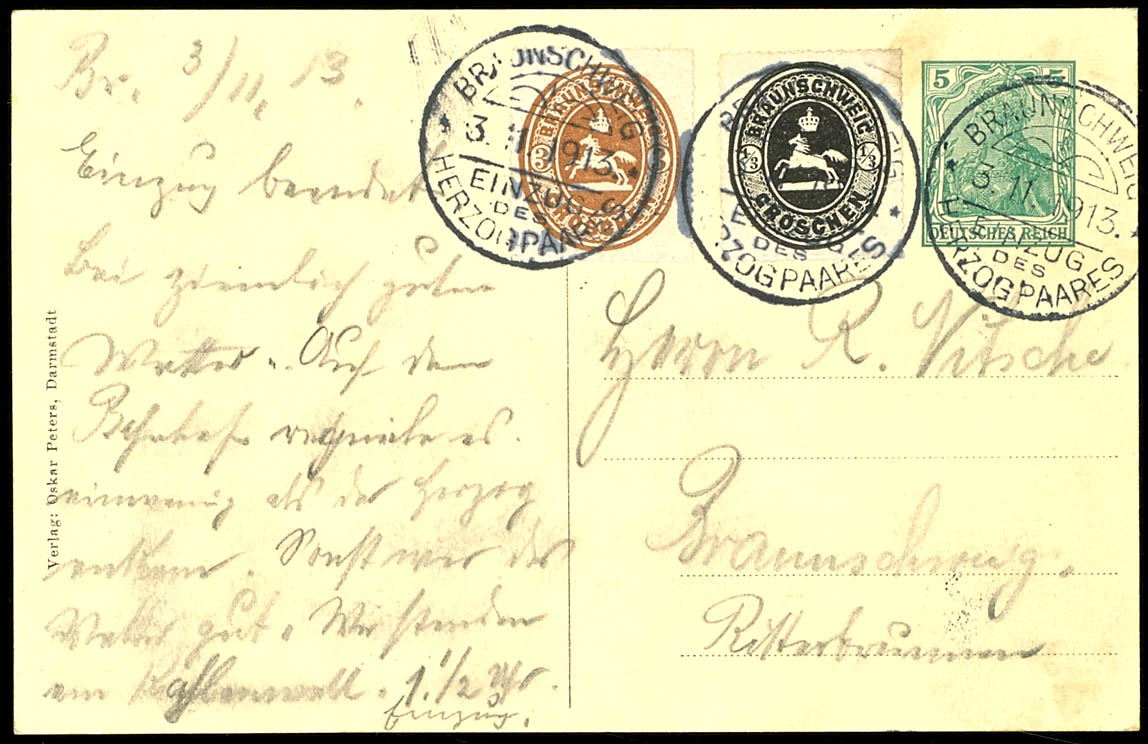 Br. 3/11. 13.
Einzug beendet
bei ziemlich guten
Wetter. Auf dem
Bahnhof regnete es
einwenig als der Herzog
ankam. Sonst war das
Wetter gut. Wir standen
am 1 1/2 Uhr.
Einzug.
Verlag: Oskar Peters, Darmstadt
BRAUNSCHWEIG
3. 11. 1913.
EINZUG
DES
HERZOGPAARES
BRAUNSCHWEIG
3 3
BRAUNSCHWEIG
EINZUG
DES
HERZOGPAARES
BRAUNSCHWEIG
1/3 1/3
GROSCHEN
BRAUNSCHWEIG
3. 11. 1913.
EINZUG
DES
HERZOGPAARES
5 5
DEUTSCHES REICH
Herrn R. Nitsche
Braunschweig.
Ritterbrunnen